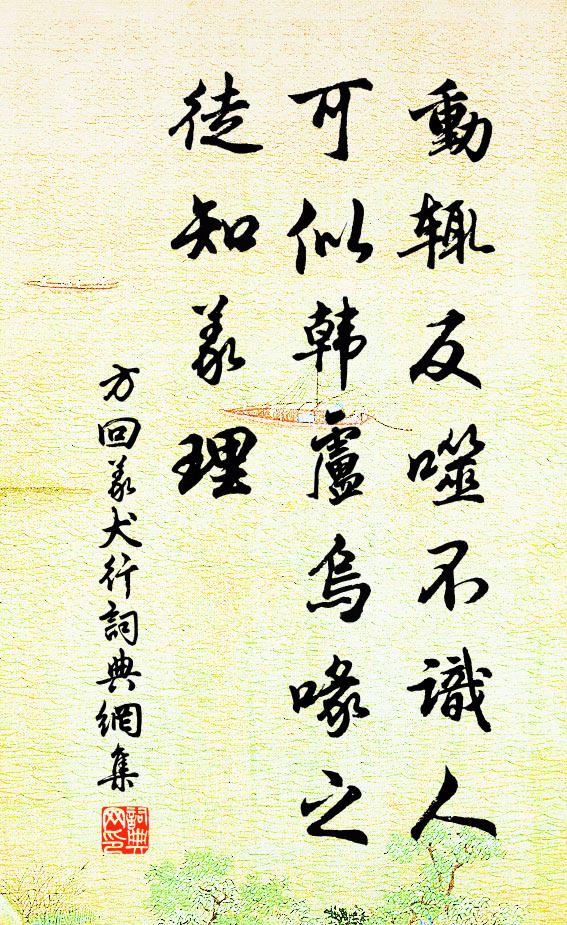 動輒反噬不識人
可似韩盧烏喙之
徒知義理
方回義犬行詞典網集
詞典網印